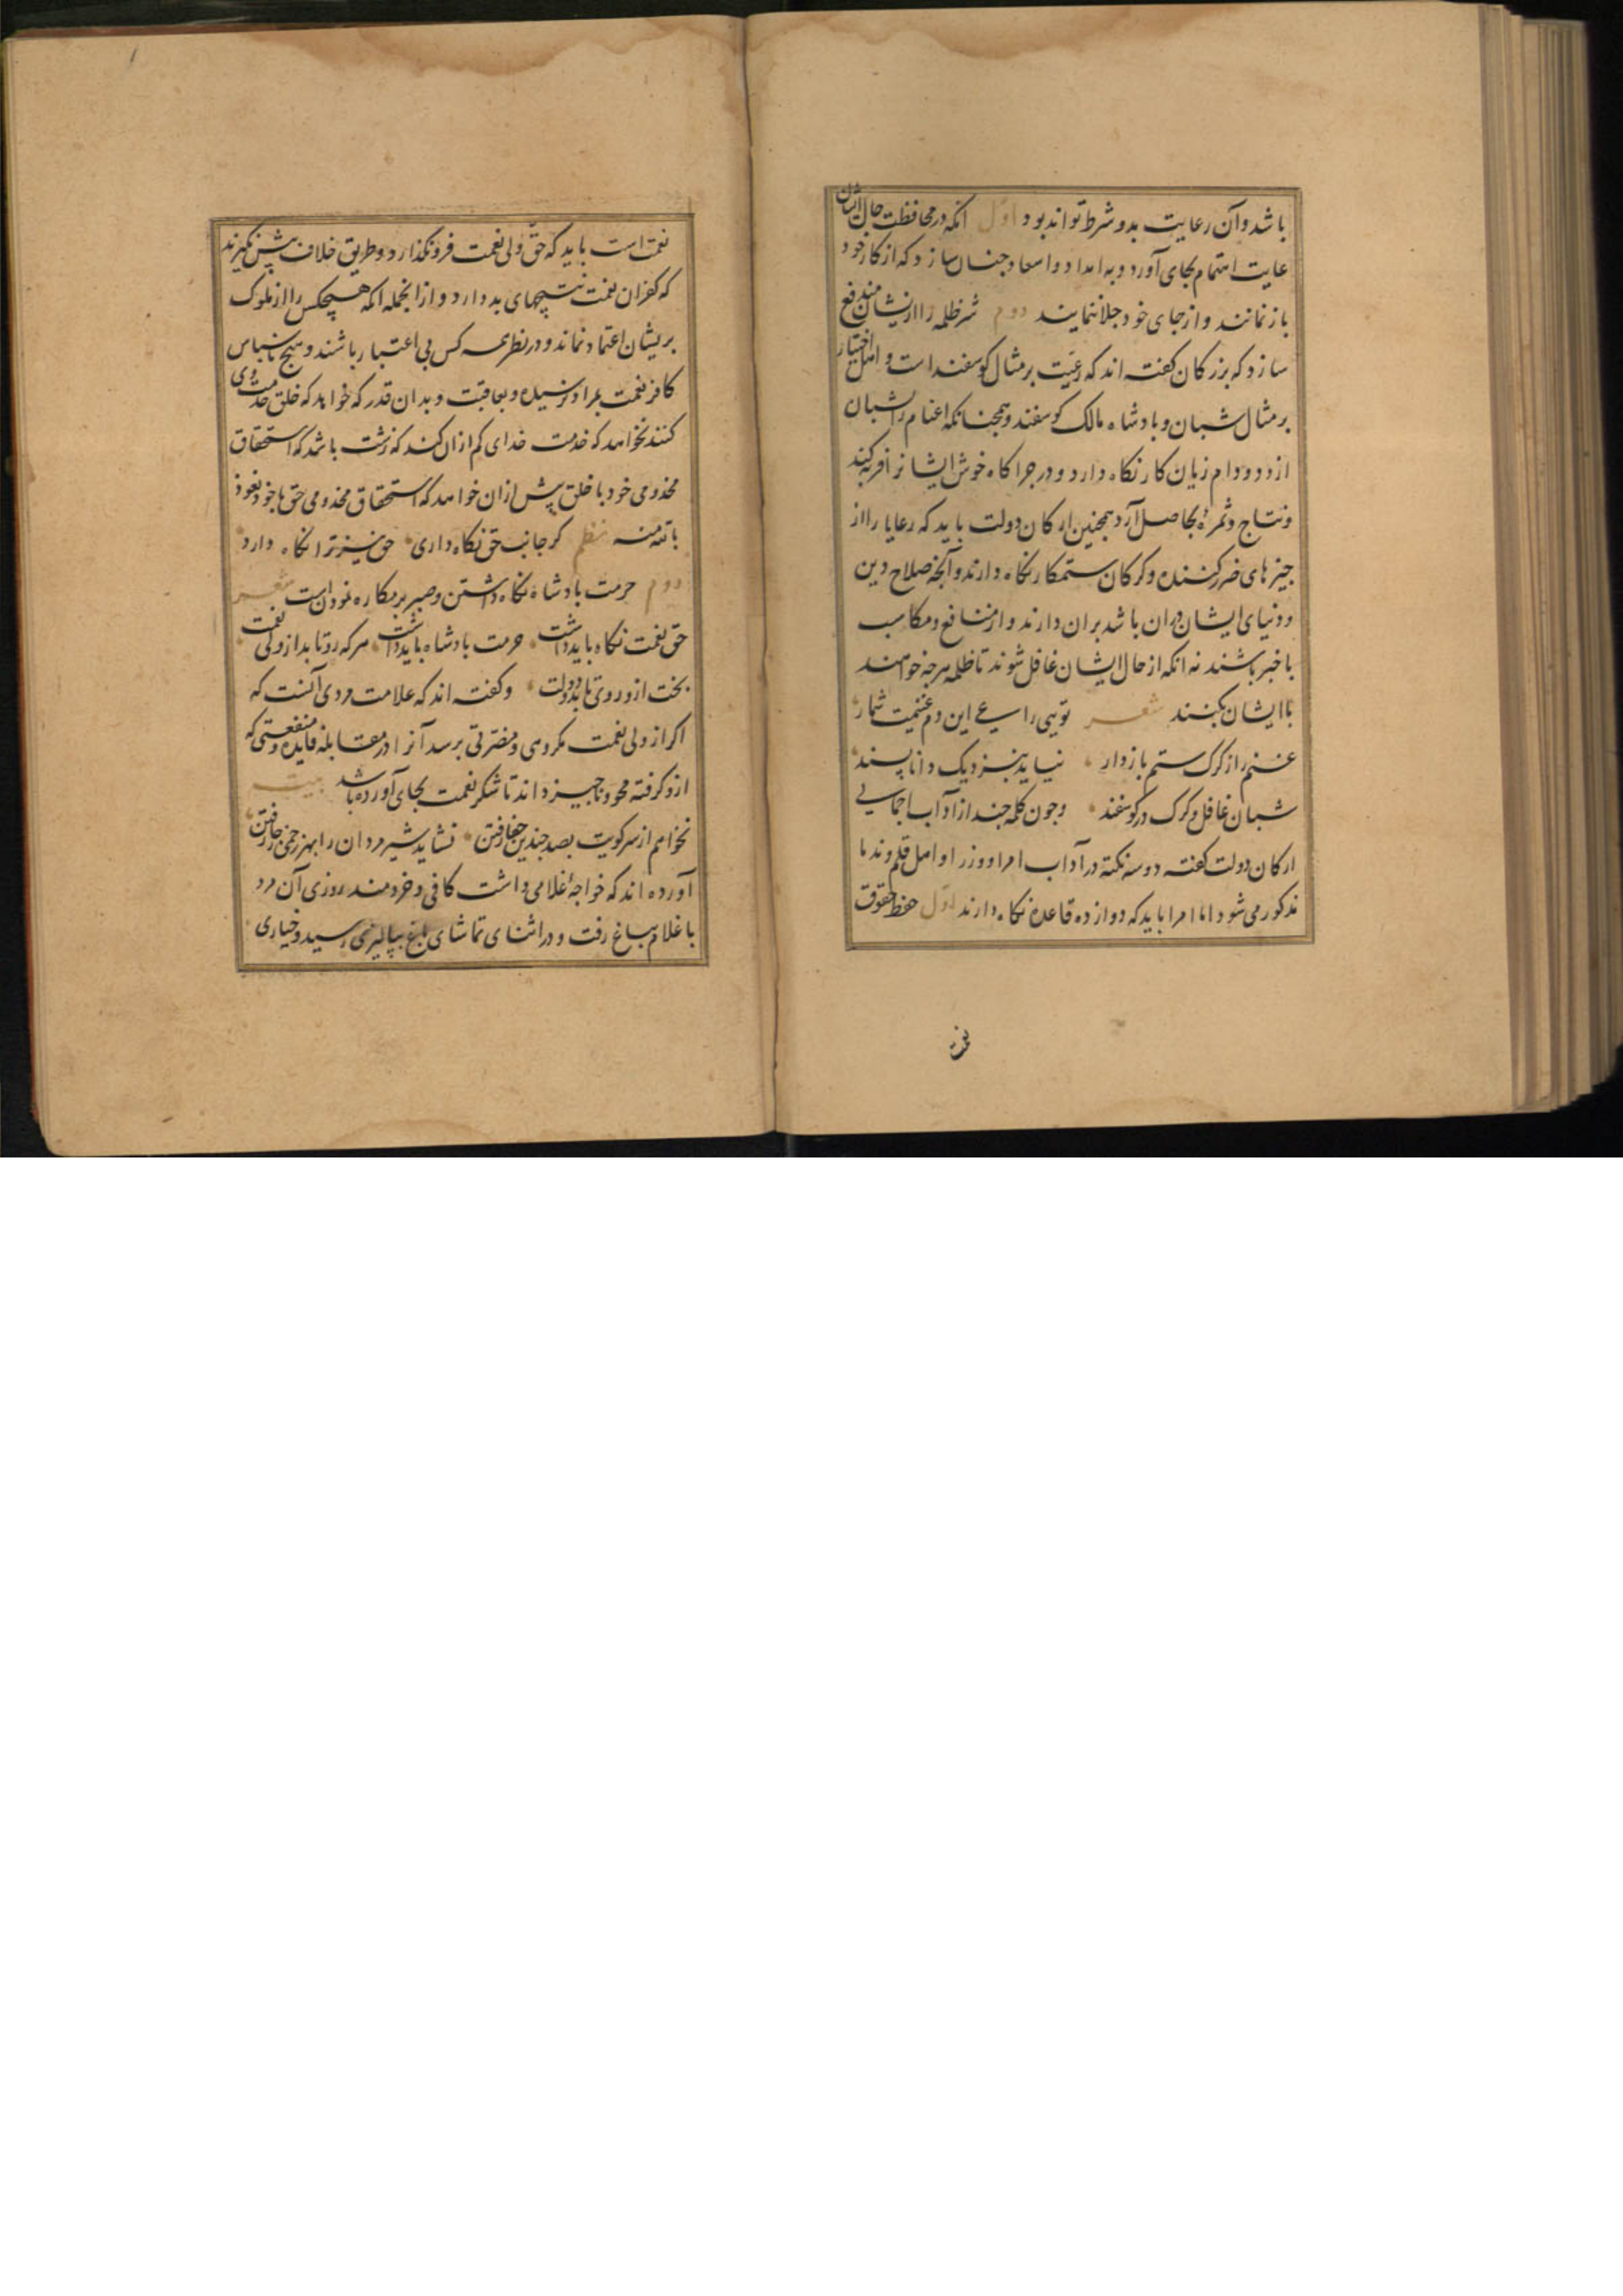 باشد و آن رعایت بدو شرط تواند بود اول آنکه در محافظت حال ایشان
غایت اهتمام بجای آورد و به امداد و اسعاد چنان سازد که از کار خود
باز نمانند و از جای خود جلا ننمایند دوم شر ظلمه را از ایشان مندفع
سازد که بزرکان کفته اند که رعیت بر مثال کوسفند است و اهل اختیار
بر مثال شبان و بادشاه مالک کوسفند و همجنانکه اغنام را شبان
از دد و دام زیان کار نکاه دارد و در جراکاه خوش ایشانرا فربه کند
و نتاج و ثمره بحاصل آرد همجنین ارکان دولت باید که رعایا را از
جیزهای ضرر کننده و کرکان ستمکار نکاه دارند و آنجه صلاح دین
و دنیای ایشان دران باشد بران دارند و از منافع و مکاسب
باخبر باشند نه آنکه از حال ایشان غافل شوند تا ظلمه هرجه خواهند
با ایشان بکنند شعر تویی راعی این دم غنیمت شمار
غنم را ز کرک ستم باز دار نیاید بنزدیک دانا پسند
شبان غافل و کرک در کوسفند و جون کلمه جند از آداب اجمالی
ارکان دولت کفته دو سه نکته در آداب امرا و وزرا و اهل قلم و ندما
مذکور می شود اما امرا باید که دوازده قاعده نکاه دارند اول حفظ حقوق
نعمت
نعمت است باید که حق ولی نعمت فرونکذارد و طریق خلاف پیش نکیرند
که کفران نعمت نتیجهای بد دارد و از انجمله آنکه هیجکس را از ملوک
بریشان اعتماد نماند و در نظر همه کس بی اعتبار باشند و هیج ناسپاس
کافر نعمت بمراد نرسیده و بعاقبت و بدان قدر که خواهد که خلق خدمت وی
کنند نخواهد که خدمت خدای کم ازان کند که زشت باشد که استحقاق
مخدومی خود با خلق پیش ازان خواهد که استحقاق مخدومی حق با خود نعوذ
بالله منه نظم کر جانب حق نکاه داری حق نیز ترا نکاه دارد
دوم حرمت بادشاه نکاه داشتن و صبر بر مکاره نمودن است شعر
حق نعمت نکاه باید داشت حرمت بادشاه باید داشت هر که رو تابد از ولی نعمت
بخت ازو روی تابد و دولت و کفته اند که علامت مردی آنست که
اکر از ولی نعمت مکروهی و مضرتی برسد آنرا در مقابله فایده و منفعتی که
ازو کرفته محو و ناجیز داند تا شکر نعمت بجای آورده باشد بیت
نخواهم از سر کویت بصد جندین جفا رفتن نشاید شیر مردان را بهر زخمی ز جا رفتن
آورده اند که خواجهٔ غلامی داشت کافی و خردمند روزی آن مرد
با غلام بباغ رفت و در اثنای تماشای باغ بپالیزی رسید و خیاری